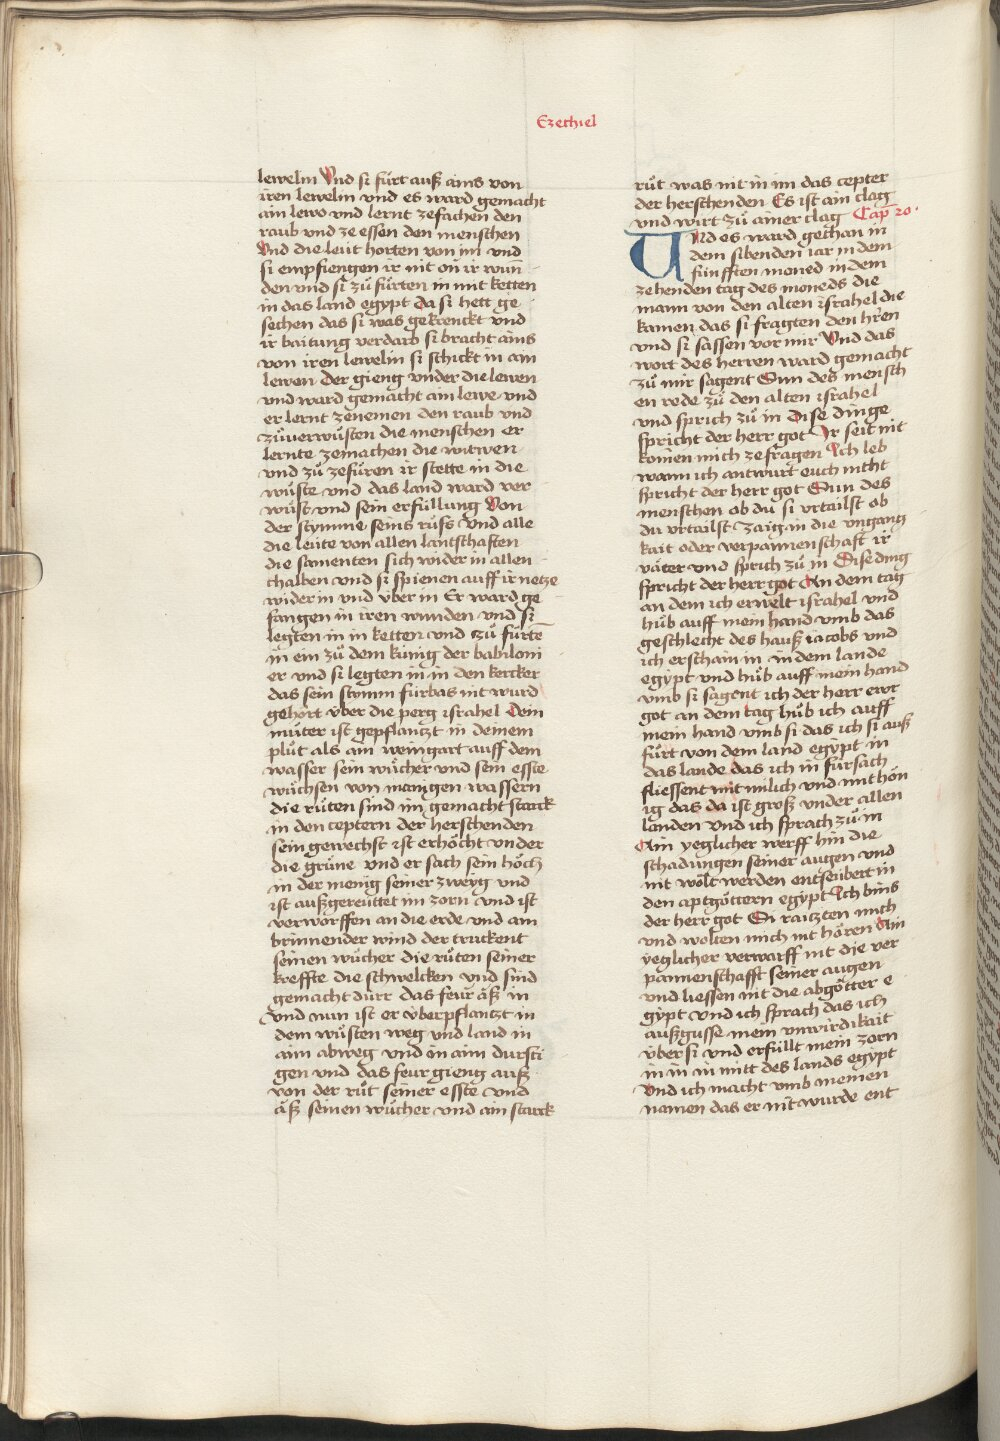 Ezechiel
lewelin Vnd si fürt auß ains von
iren lewelin vnd es ward gemacht
ain lewo vnd lernt zefachen den
raub vnd ze essen den menschen
Vnd die leut horten von im vnd
si empfiengen ir nit on ir wun̄
den vnd si zů fürten in mit ketten
in das land egypt da si hett ge
sechen das si was gekrenckt vnd
ir baitung verdarb si bracht ains
von iren lewelin si schickt in ain
lewen der gieng vnder die lewen
vnd ward gemacht ain lewe vnd
er lernt zenemen den raub vnd
zůuerwüsten die menschen er
lernte zemachen die witwen
vnd zů zefüren ir stette in die
wüste vnd das land ward ver
wüst vnd sein erfüllung Von
der stymme seins růfs vnd alle
die leüte von allen lantschaften
die samenten sich wider in allen
thalben vnd si spienen auff ir netze
wider in vnd vber in Er ward ge
fangen in iren wunden vnd si
legten in in ketten vnd zů fürte
in ein zů dem künig der babiloni
er vnd si legten in in den kercker
das sein stymm fürbas nit wurd
gehört vber die perg israhel Dein
můter ist gepflantzt in deinem
plůt als ain weingart auff dem
wasser sein wůcher vnd sein esste
wůchsen von mangen wassern
die růten sind im gemacht starck
in den ceptern der herschenden
sein gewechst ist erhöcht vnder
die grüne vnd er sach sein höch
in der menig seiner zweyg vnd
ist außgereüttet im zorn vnd ist
verworffen an die erde vnd ain
brinnender wind der truckent
seinen wůcher die růten seiner
kreffte die schwelcken vnd sind
gemacht dürr das feür äß in
vnd nun ist er vberpflantzt in
dem wüsten weg vnd land in
aim abweg vnd in aim dursti
gen vnd das feur gieng auß
von der růt seiner esste vnd
äß seinen wůcher vnd ain starck
růt was nit in im das cepter
der herschenden Es ist ain clag
vnd wirt zů ainer clag Cap̄ 20.
VNd es ward gethan in
dem sibenden iar in dem
fünfften moned in dem
zehenden tag des moneds die
mann von den alten israhel die
kamen das si fragten den hr̄en
vnd si sassen vor mir Vnd das
wort des herren ward gemacht
zů mir sagent Sun des mensch
en rede zů den alten israhel
vnd sprich zů in Dise dinge
spricht der herr got Ir seit nit
komen mich zefragen Ich leb
wann ich antwürt euch nicht
spricht der herr got Sun des
menschen ob du si vrtailst ob
du vrtailst zaig in die vngantz
kait oder verpannenschaft ir
väter vnd sprich zů in Dise ding
spricht der herr got An dem tag
an dem ich erwelt israhel vnd
hůb auff mein hand vmb das
geschlecht des hauß iacobs vnd
ich erschain in in dem lande
egypt vnd hůb auff mein hand
vmb si sagent ich der herr ewr
got an dem tag hůb ich auff
mein hand vmb si das ich si auß
fürt von dem land egypt in
das lande das ich in fürsach
fliessent mit milich vnd mit hön
ig das da ist groß vnder allen
landen Vnd ich sprach zů in
Ain yeglicher werff hin die
schadungen seiner augen vnd
nit wölt werden entseübert in
den aptgöttern egypt Ich bins
der herr got Si raitzten mich
vnd wolten mich nit hören Ain
yeglicher verwarff nit die ver
pannenschafft seiner augen
vnd liessen nit die abgötter e
gypt vnd ich sprach das ich
außgusse mein vnwirdikait
vber si vnd erfüllt mein zorn
in in in mitt des lands egypt
Vnd ich macht vmb meinen
namen das er nit wurde ent